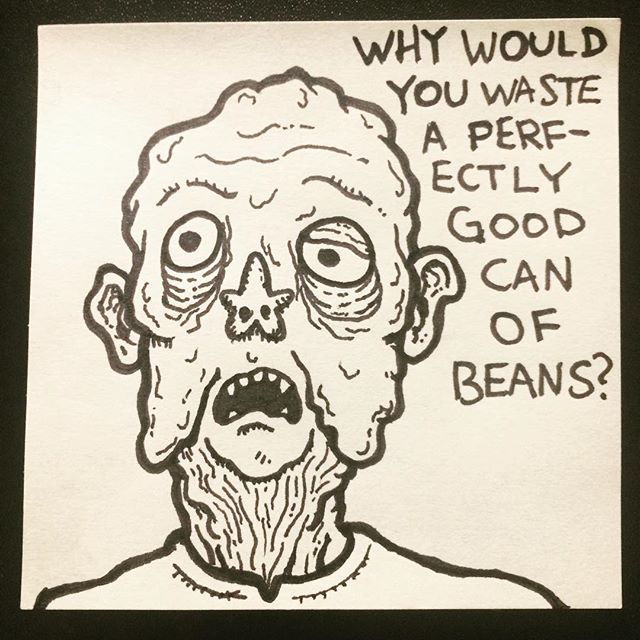 WHY WOULD
YOU WASTE
A PERF-
ECTLY
GOOD
CAN
OF
BEANS?